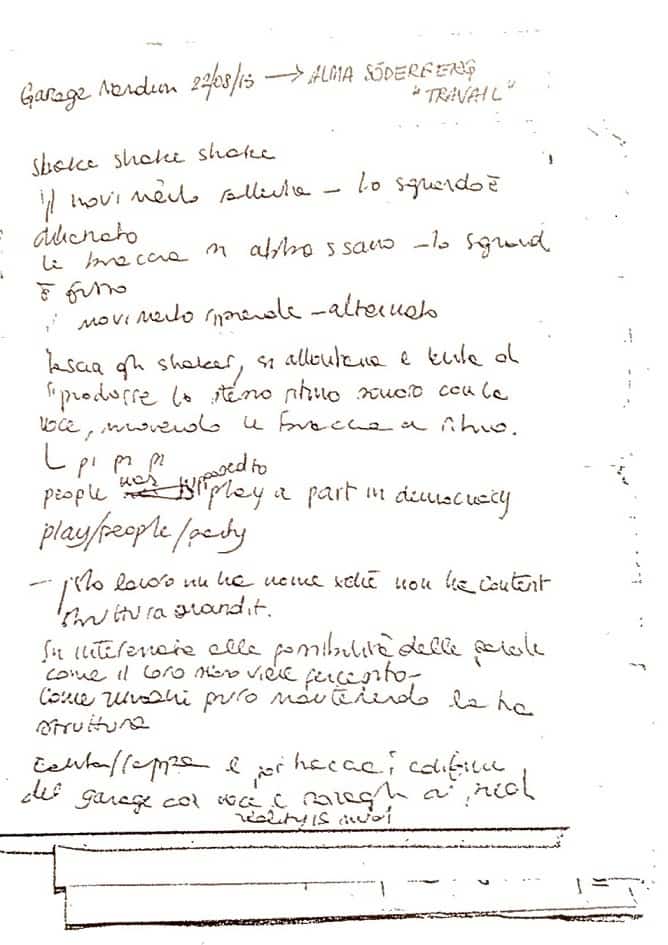 Garage Nardini 22/08/15 → ALMA SÖDERBERG
"TRAVAIL"
shake shake shake
il movimento rallenta – lo sguardo è
alienato
le braccia si abbassano – lo sguard
è fisso
il movimento riprende – alternato
lascia gli shaker, si allontana e tenta di
riprodurre lo stesso ritmo sonoro con la
voce, movendo le braccia a ritmo.
pi pi pi
people was supposed to play a part in democracy
play/people/party
– sto lavoro nu ha nome xchè non ha content
struttura
Si interessa alle possibilità delle parole
come il loro viene percepito –
come puro mantenendo la
struttura
e poi
del garage con voce e
reality is